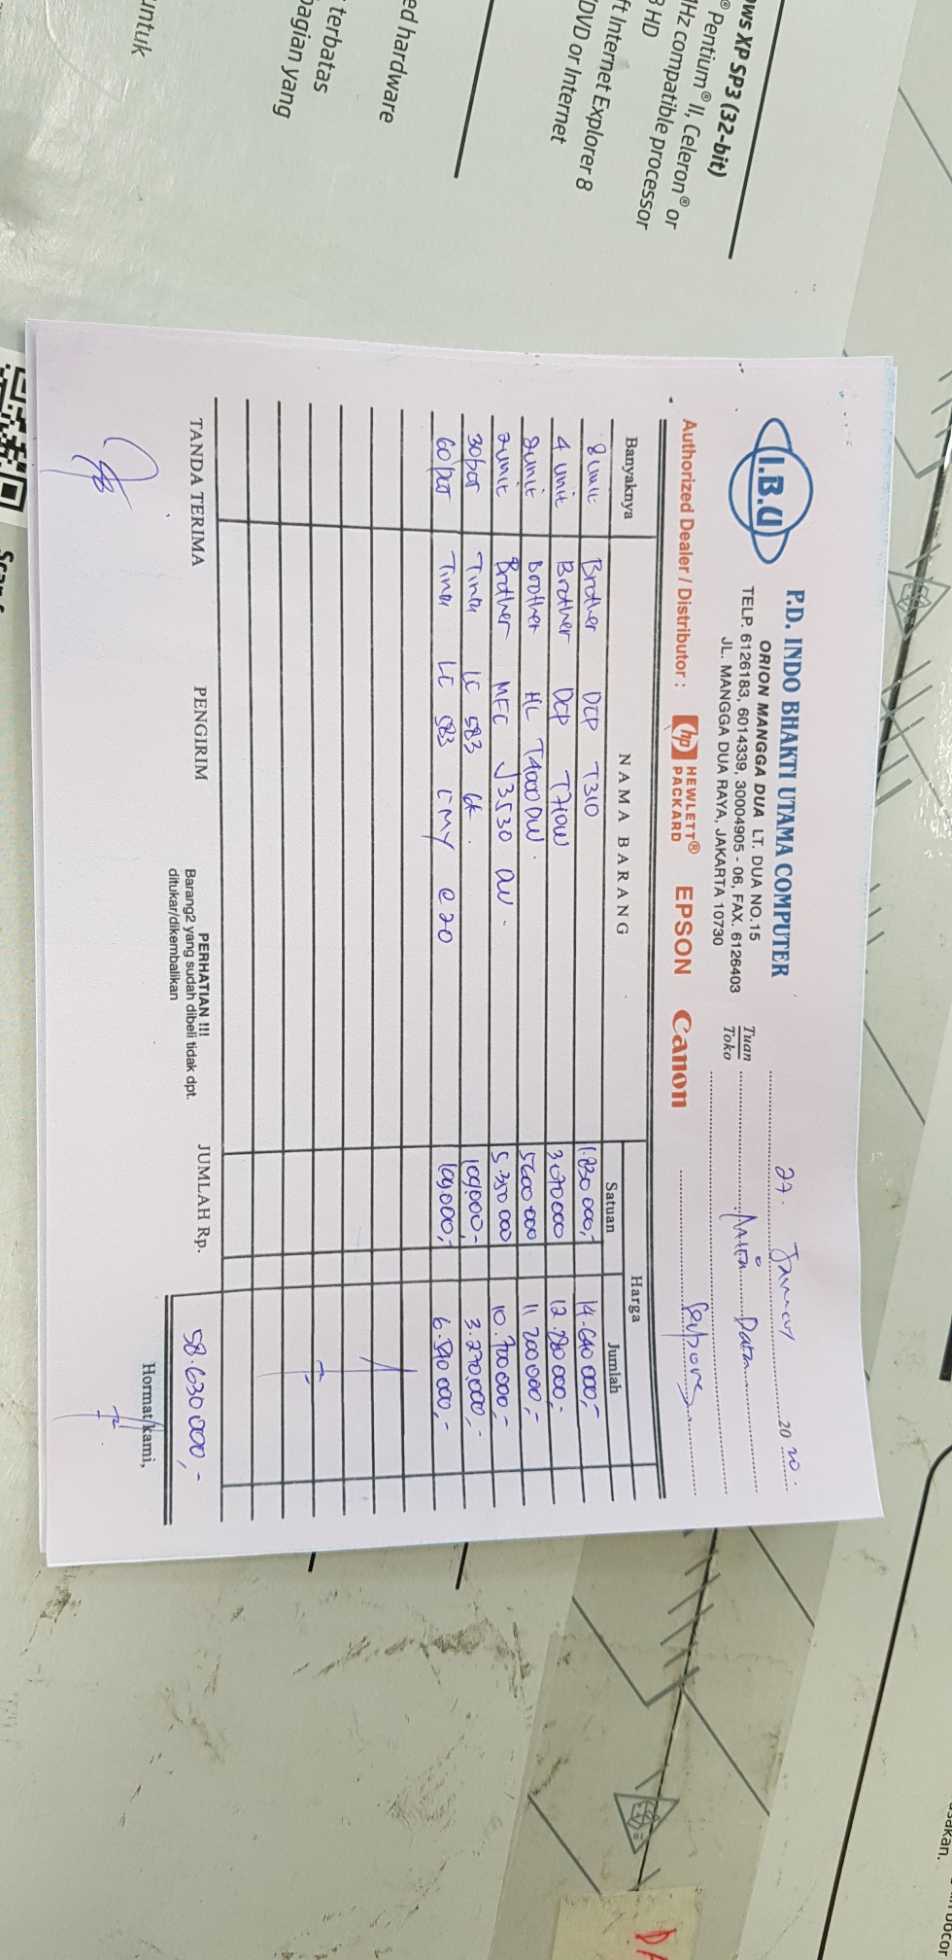 ows XP SP3 (32-bit)
® Pentium® II, Celeron® or
Hz compatible processor
HD
ft Internet Explorer 8
DVD or Internet
ed hardware
terbatas
bagian yang
untuk
I.B.U
P.D. INDO BHAKTI UTAMA COMPUTER
ORION MANGGA DUA LT. DUA NO.15
TELP. 6126183, 6014339, 30004905 - 06, FAX. 6126403
JL. MANGGA DUA RAYA, JAKARTA 10730
27. 20 20.
Tuan
Toko
Data
Authorized Dealer / Distributor : hp HEWLETT® PACKARD EPSON Canon
Banyaknya NAMA BARANG Harga
Satuan Jumlah
8 unit Brother DCP T310 1.830 000,- 14.640 000,-
4 unit Brother DCP T710W 3.070 000 12.280 000,-
2unit Brother HL T4000 DW. 5600 000 11 200 000,-
2unit Brother MFC J3530 DW. 5.350 000 10.700 000,-
30pct Tinta LC 583 BK. 109.000,- 3.270.000,-
60pct Tinta LC 583 CMY @20 109.000,- 6.540 000,-
TANDA TERIMA PENGIRIM
PERHATIAN !!!
Barang2 yang sudah dibeli tidak dpt.
ditukar/dikembalikan
JUMLAH Rp. 58.630 000,-
Hormat kami,